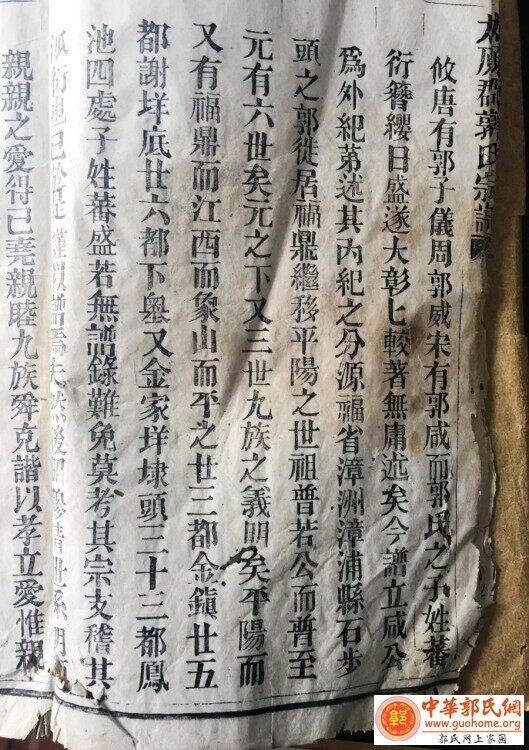 太原郡郭氏宗譜
攸唐有郭子儀周郭威宋有郭咸而郭氏之子姓蕃
衍簪纓日盛遂大彰匕較著無庸述矣今譜立咸公
爲外紀苐述其內紀之分源福省漳洲漳浦縣石步
頭之郭徙居福鼎繼移平陽之世祖普若公而普至
元有六世矣元之下又三世九族之義明矣平陽而
又有福鼎而江西而象山而平之廿三都金鎮廿五
都謝垟底廿六都下㘰又金家垟埭頭三十三都鳳
池四處子姓蕃盛若無譜錄難免莫考其宗支稽其
派衍也已於是謹以譜焉夫然後昭穆清世系明
親親之愛得已堯親睦九族舜克諧以孝立愛惟親
中華郭氏網
www.guohome.com
郭氏网上家園